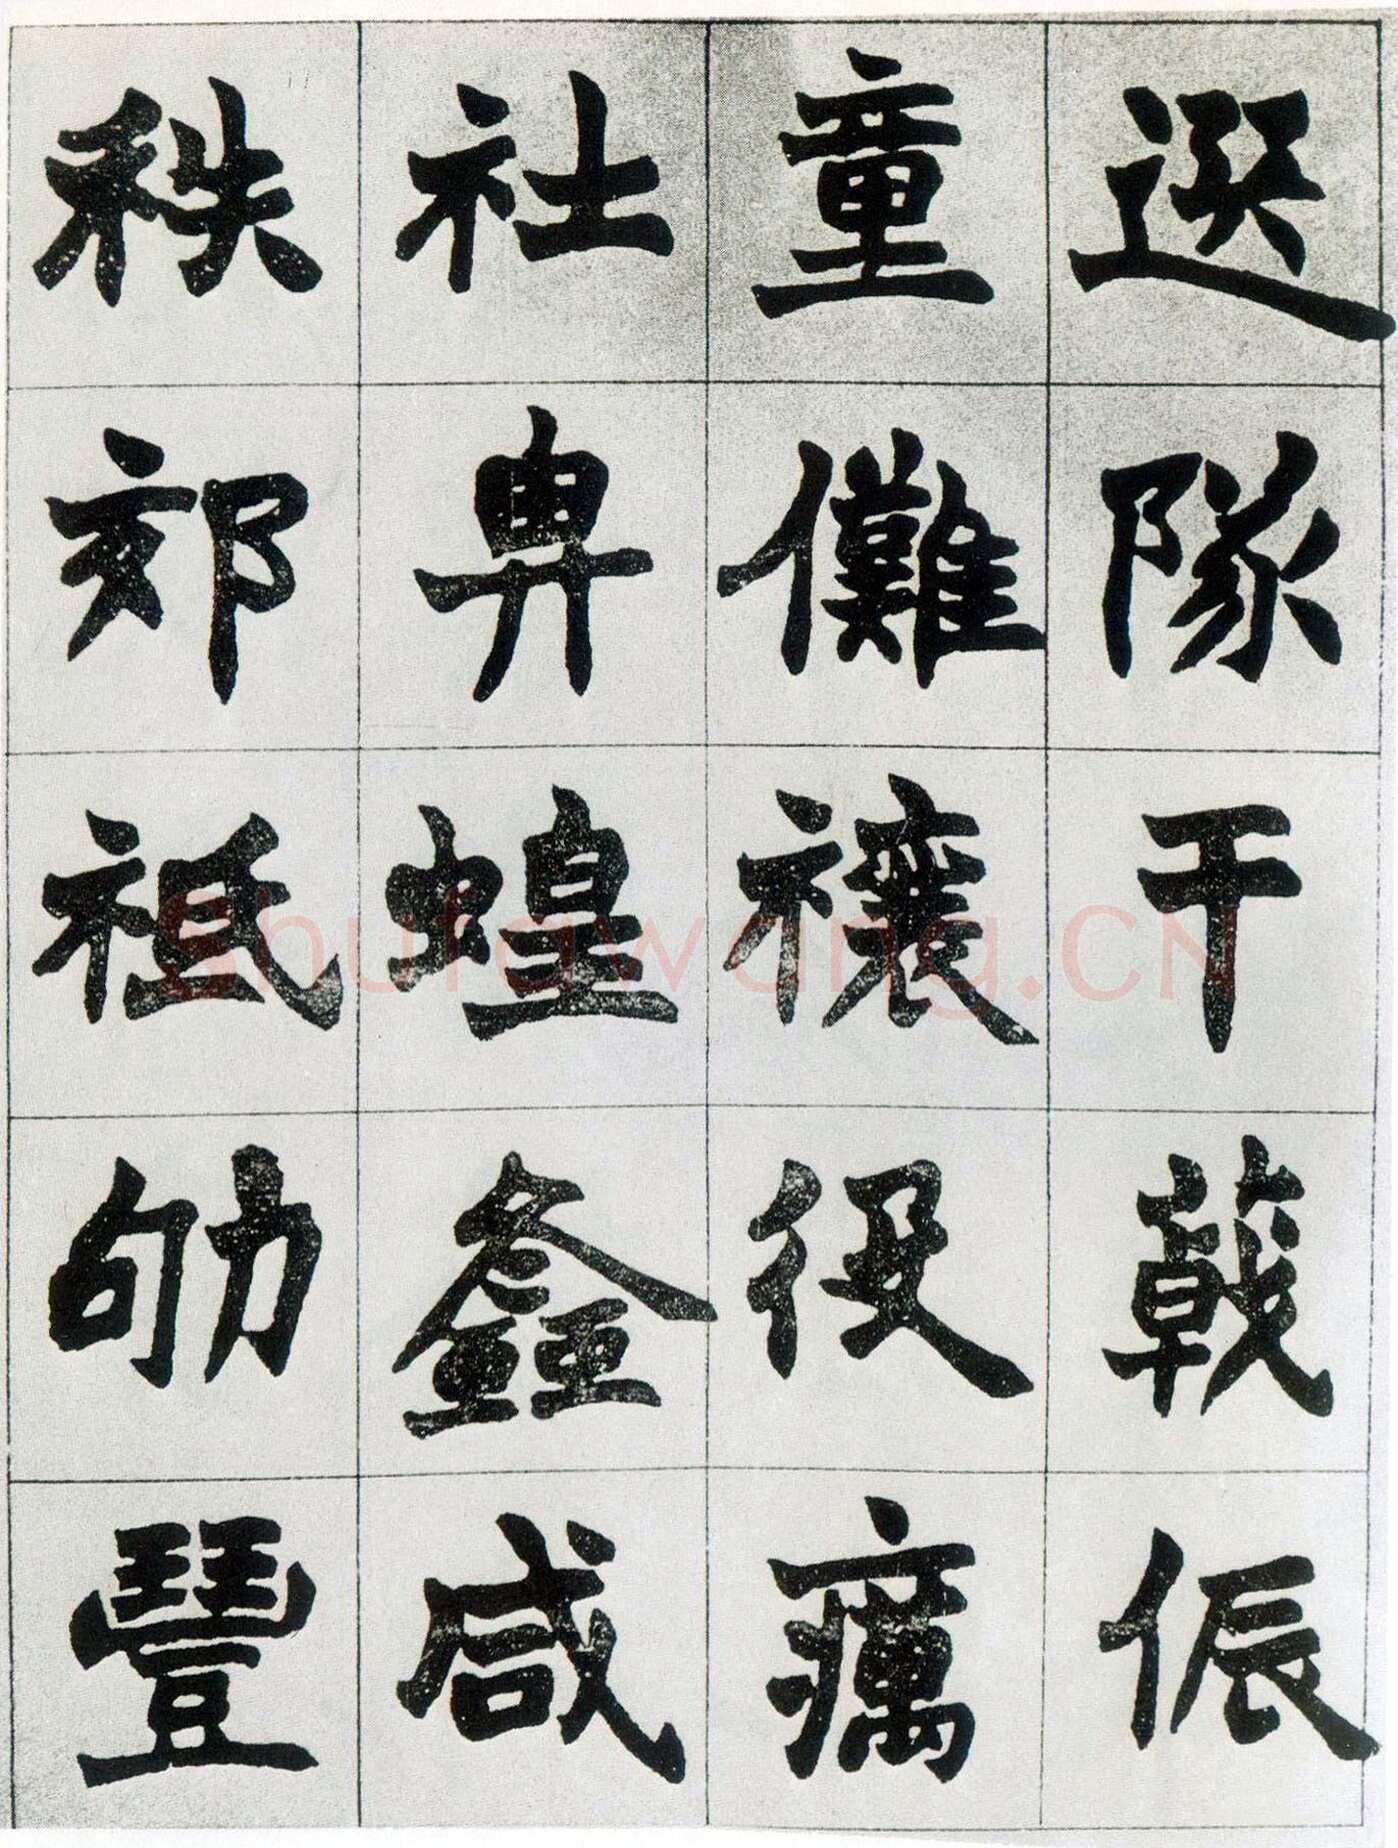 選隊干戟侲
童儺禳役癘
社畀蝗鑫咸
秩郊祗劬豐
shufawang.CN